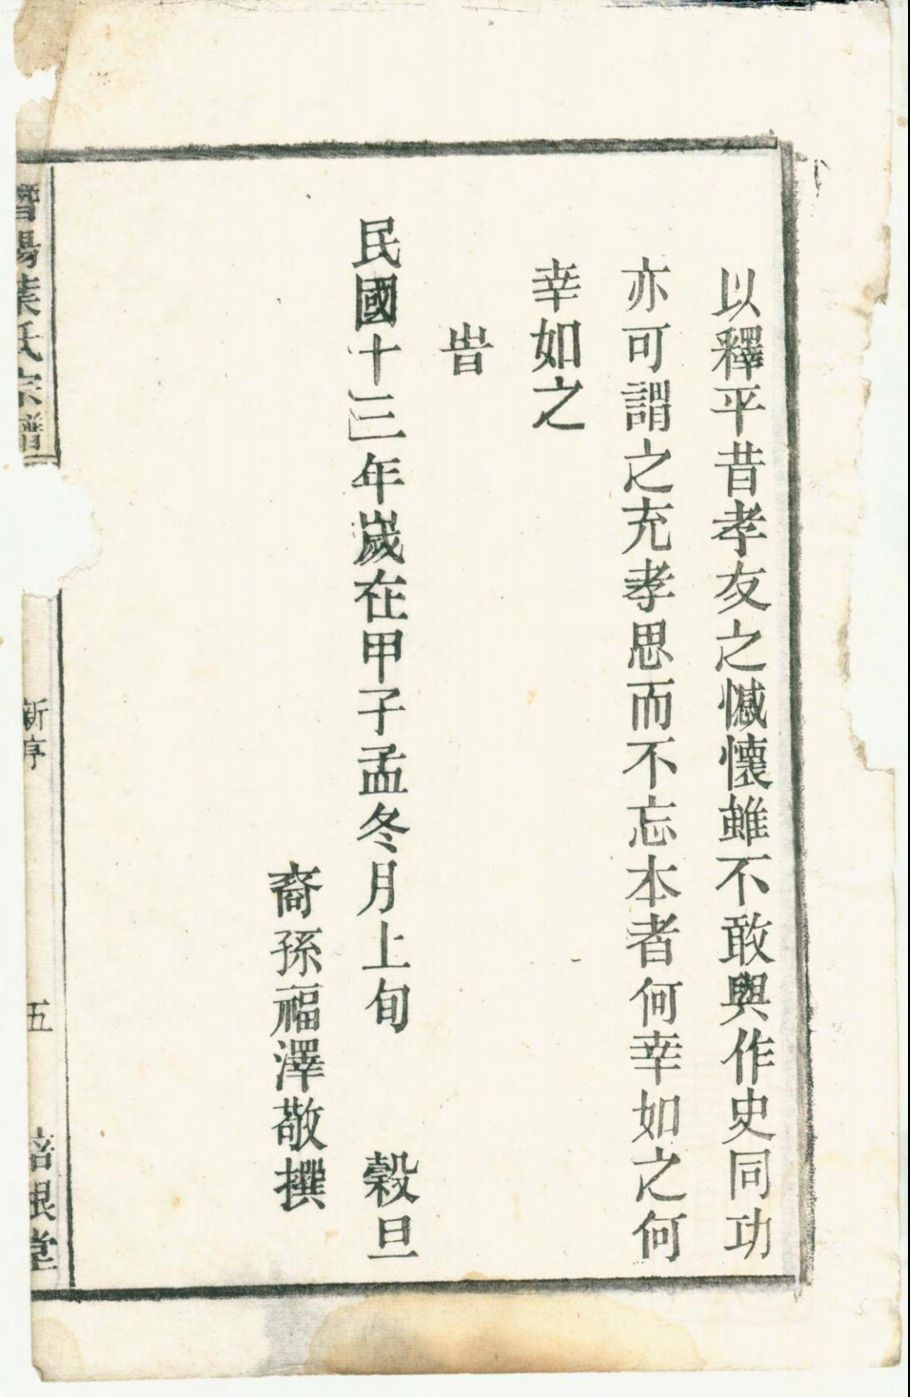 以釋平昔孝友之憾懷雖不敢與作史同功
亦可謂之充孝思而不忘本者何幸如之何
幸如之
旹
民國十三年嵗在甲子孟冬月上旬 穀旦
裔孫福澤敬撰
暨陽葉氏宗譜
新序
五
培根堂